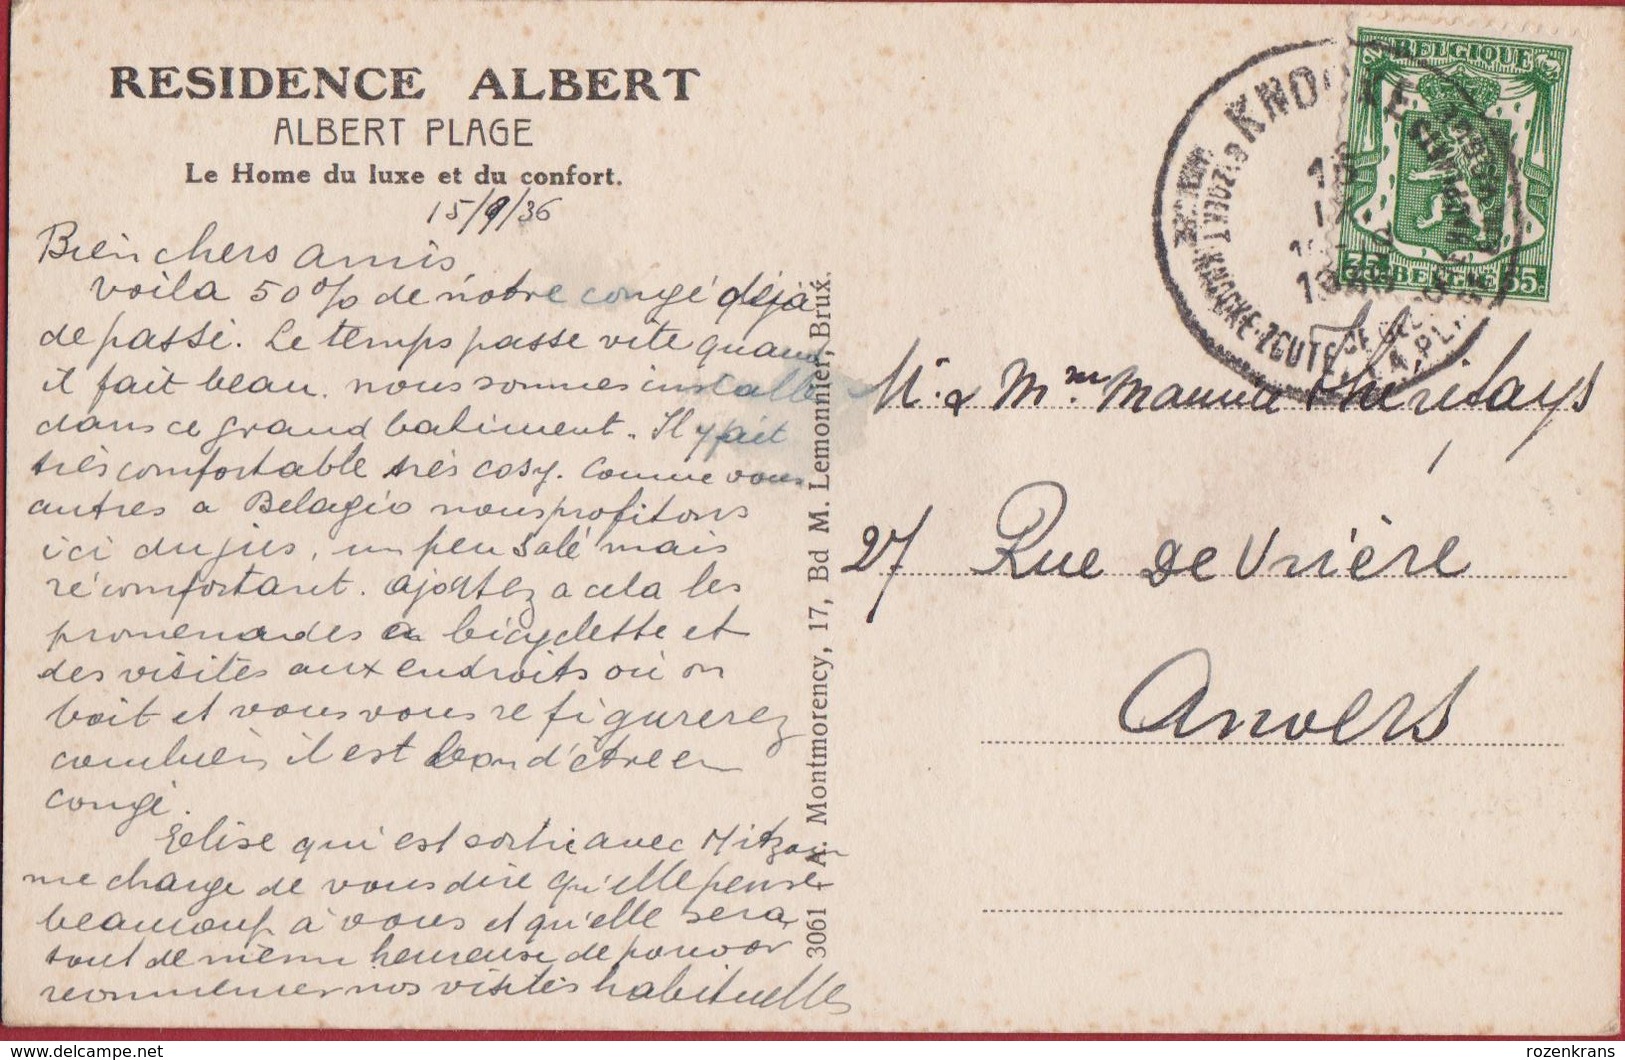 RESIDENCE ALBERT
ALBERT PLAGE
Le Home du luxe et du confort.
15/9/36
Bien chers amis,
voila 50% de notre congé déjà
de passé. Le temps passe vite quand
il fait beau. nous sommes installé
dans ce grand batiment. Il y fait
très comfortable très cosy. Comme vous
autres a Belagio nous profitons
ici du jus, un peu salé mais
réconfortant. ajoutez a cela les
promenades en bicyclette et
des visites aux endroits où on
boit et vous vous refigurerez
combien il est bon d'être en
congé.
Elise qui est sortie avec
me charge de vous dire qu'elle pense
beaucoup à vous et qu'elle sera
tout de même heureuse de pouvoir
recommencer nos visites habituelles
3061 A. Montmorency, 17, Bd M. Lemonnier, Brux.
BELGIQUE
35 BELGIË 35c
KNOCKE
KNOCKE-ZOUTE
Mr. & Mme. Maurice
27 Rue De Vrière
Anvers
delcampe.net
rozenkrans